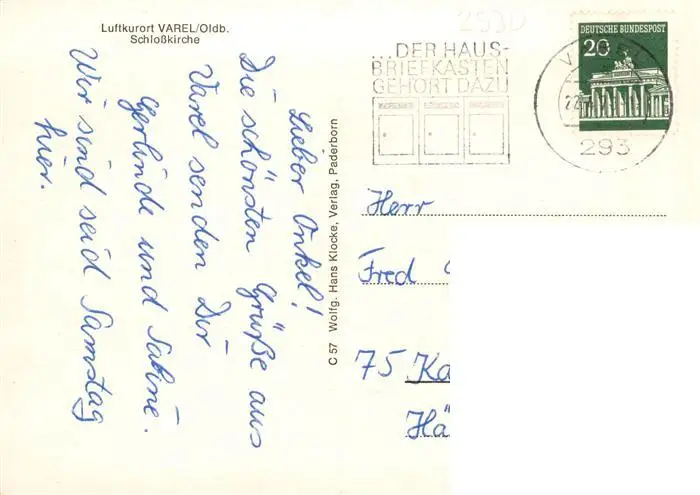 Luftkurort VAREL/Oldb.
Schloßkirche
Lieber Onkel!
Die schönsten Grüße aus
Varel senden Dir
Gerlinde und Sabine.
Wir sind seid Samstag
hier.
C 57 Wolfg. Hans Klocke, Verlag, Paderborn
2930
...DER HAUS-
BRIEFKASTEN
GEHÖRT DAZU
DEUTSCHE BUNDESPOST
20
VAREL
293
Herr
Fred
75 Ka
Hä